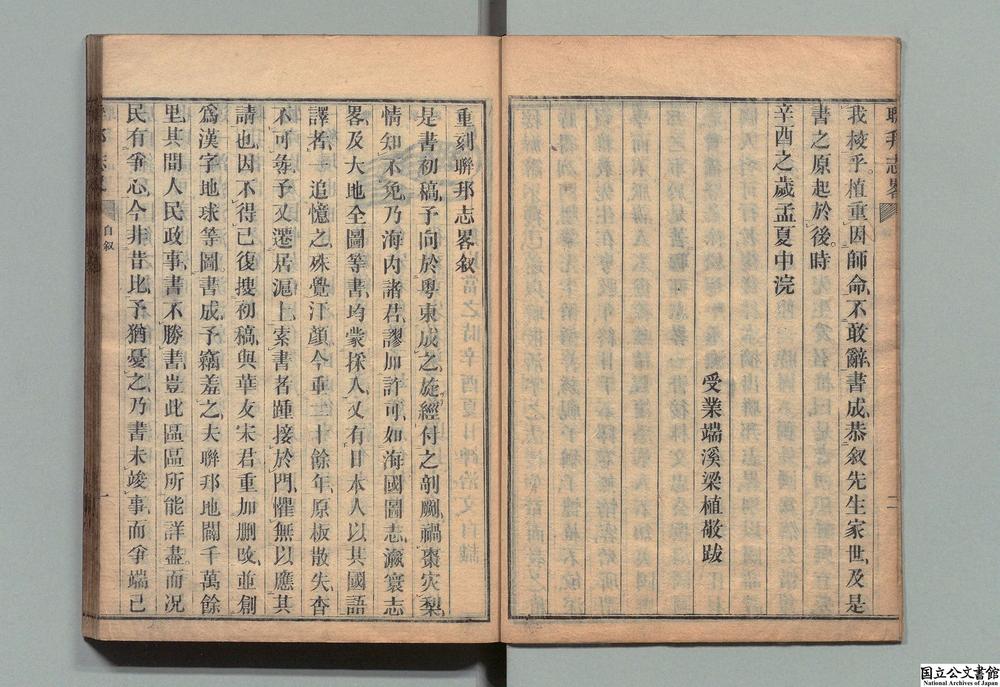 聯邦志畧
二
我梭乎。植重因師命、不敢辭、書成恭叙先生家世、及是
書之原起於後。時
辛酉之歲孟夏中浣
受業端溪梁植敬跋
重刻聯邦志畧叙
是書初稿、予向於粤東成之、旋經付之剞劂、禍棗灾梨、
情知不免、乃海内諸君、謬加許可、如海國圖志、瀛寰志
畧、及大地全圖等書、均蒙採入、又有日本人以其國語
譯者、一追憶之、殊覺汗顔、今垂二十餘年、原板散失、杳
不可筭、予又遷居滬上、索書者踵接於門、懼無以應其
請也、因不得已、復搜初稿、與華友宋君重加删改、並創
爲漢字地球等圖、書成予竊羞之、夫聯邦地闢千萬餘
里、其間人民政事、書不勝書、豈此區區所能詳盡。而況
民有爭心、今非昔比、予猶憂之、乃書未竣事、而爭端已
聯邦志畧
自叙
一
国立公文書館
National Archives of Japan